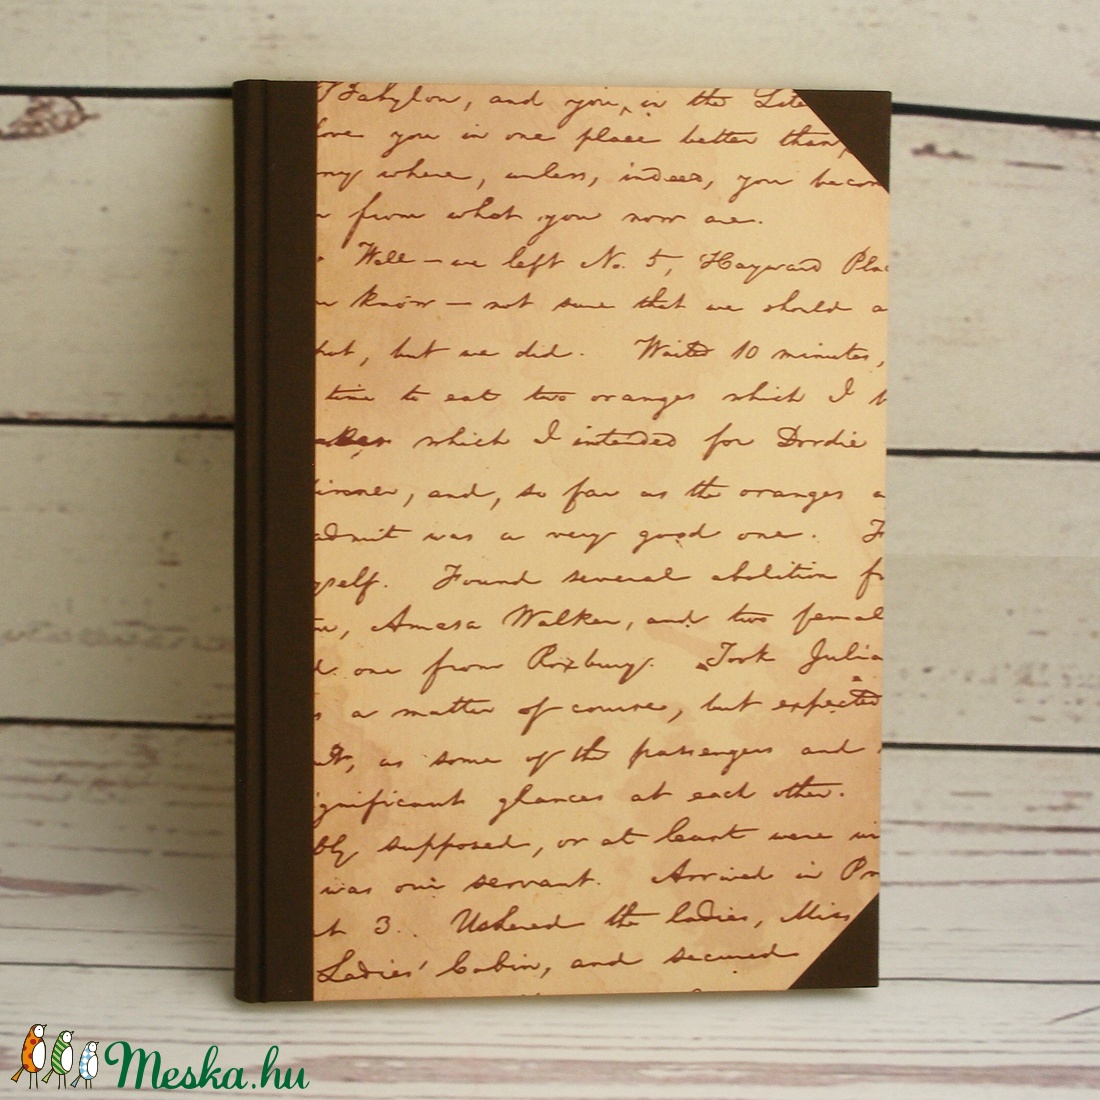 Babylon, and you, in the Lite
love you in one place better than
ny where, unless, indeed, you becom
n from what you now are.
Well — we left No. 5, Hayward Plac
u know — not sure that we should a
hot, but we did. Waited 10 minutes,
time to eat two oranges which I b
which I intended for Dordie
dinner, and, so far as the oranges a
admit was a very good one. F
yself. Found several abolition fr
Amasa Walker, and two femal
d one from Roxbury. Took Julia
s a matter of course, but expected
as some of the passengers and
gnificant glances at each other.
bly supposed, or at least were wi
was our servant. Arrived in Pr
at 3. Ushered the ladies, Miss
Ladies' Cabin, and secured
Meska.hu